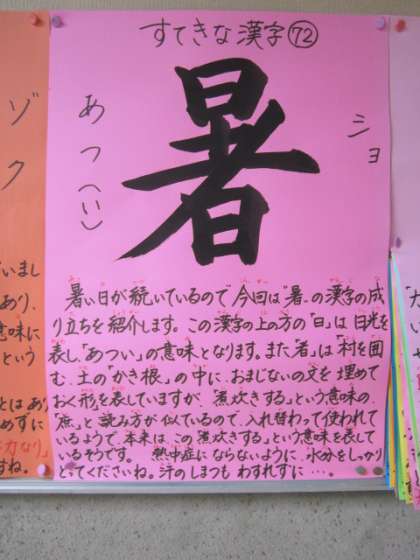 すてきな漢字72
暑
あつ(い)
ショ
暑い日が続いているので今回は"暑"の漢字の成
り立ちを紹介します。この漢字の上の方の「日」は日光を
表し「あつい」の意味となります。また「者」は「村を囲
む、土の「かき根」の中に、おまじないの文を埋めて
おく形」を表していますが、「煮炊きする」という意味の
「庶」と読み方が似ているので、入れ替わって使われて
いるようで、本来は、この「煮炊きする」という意味を表して
いるそうです。熱中症にならないように、水分をしっかり
とってくださいね。汗のしまつもわすれずに….
ゾク
いまし
あり、
意味に
という
とは あり
めずに
なり」
すね。